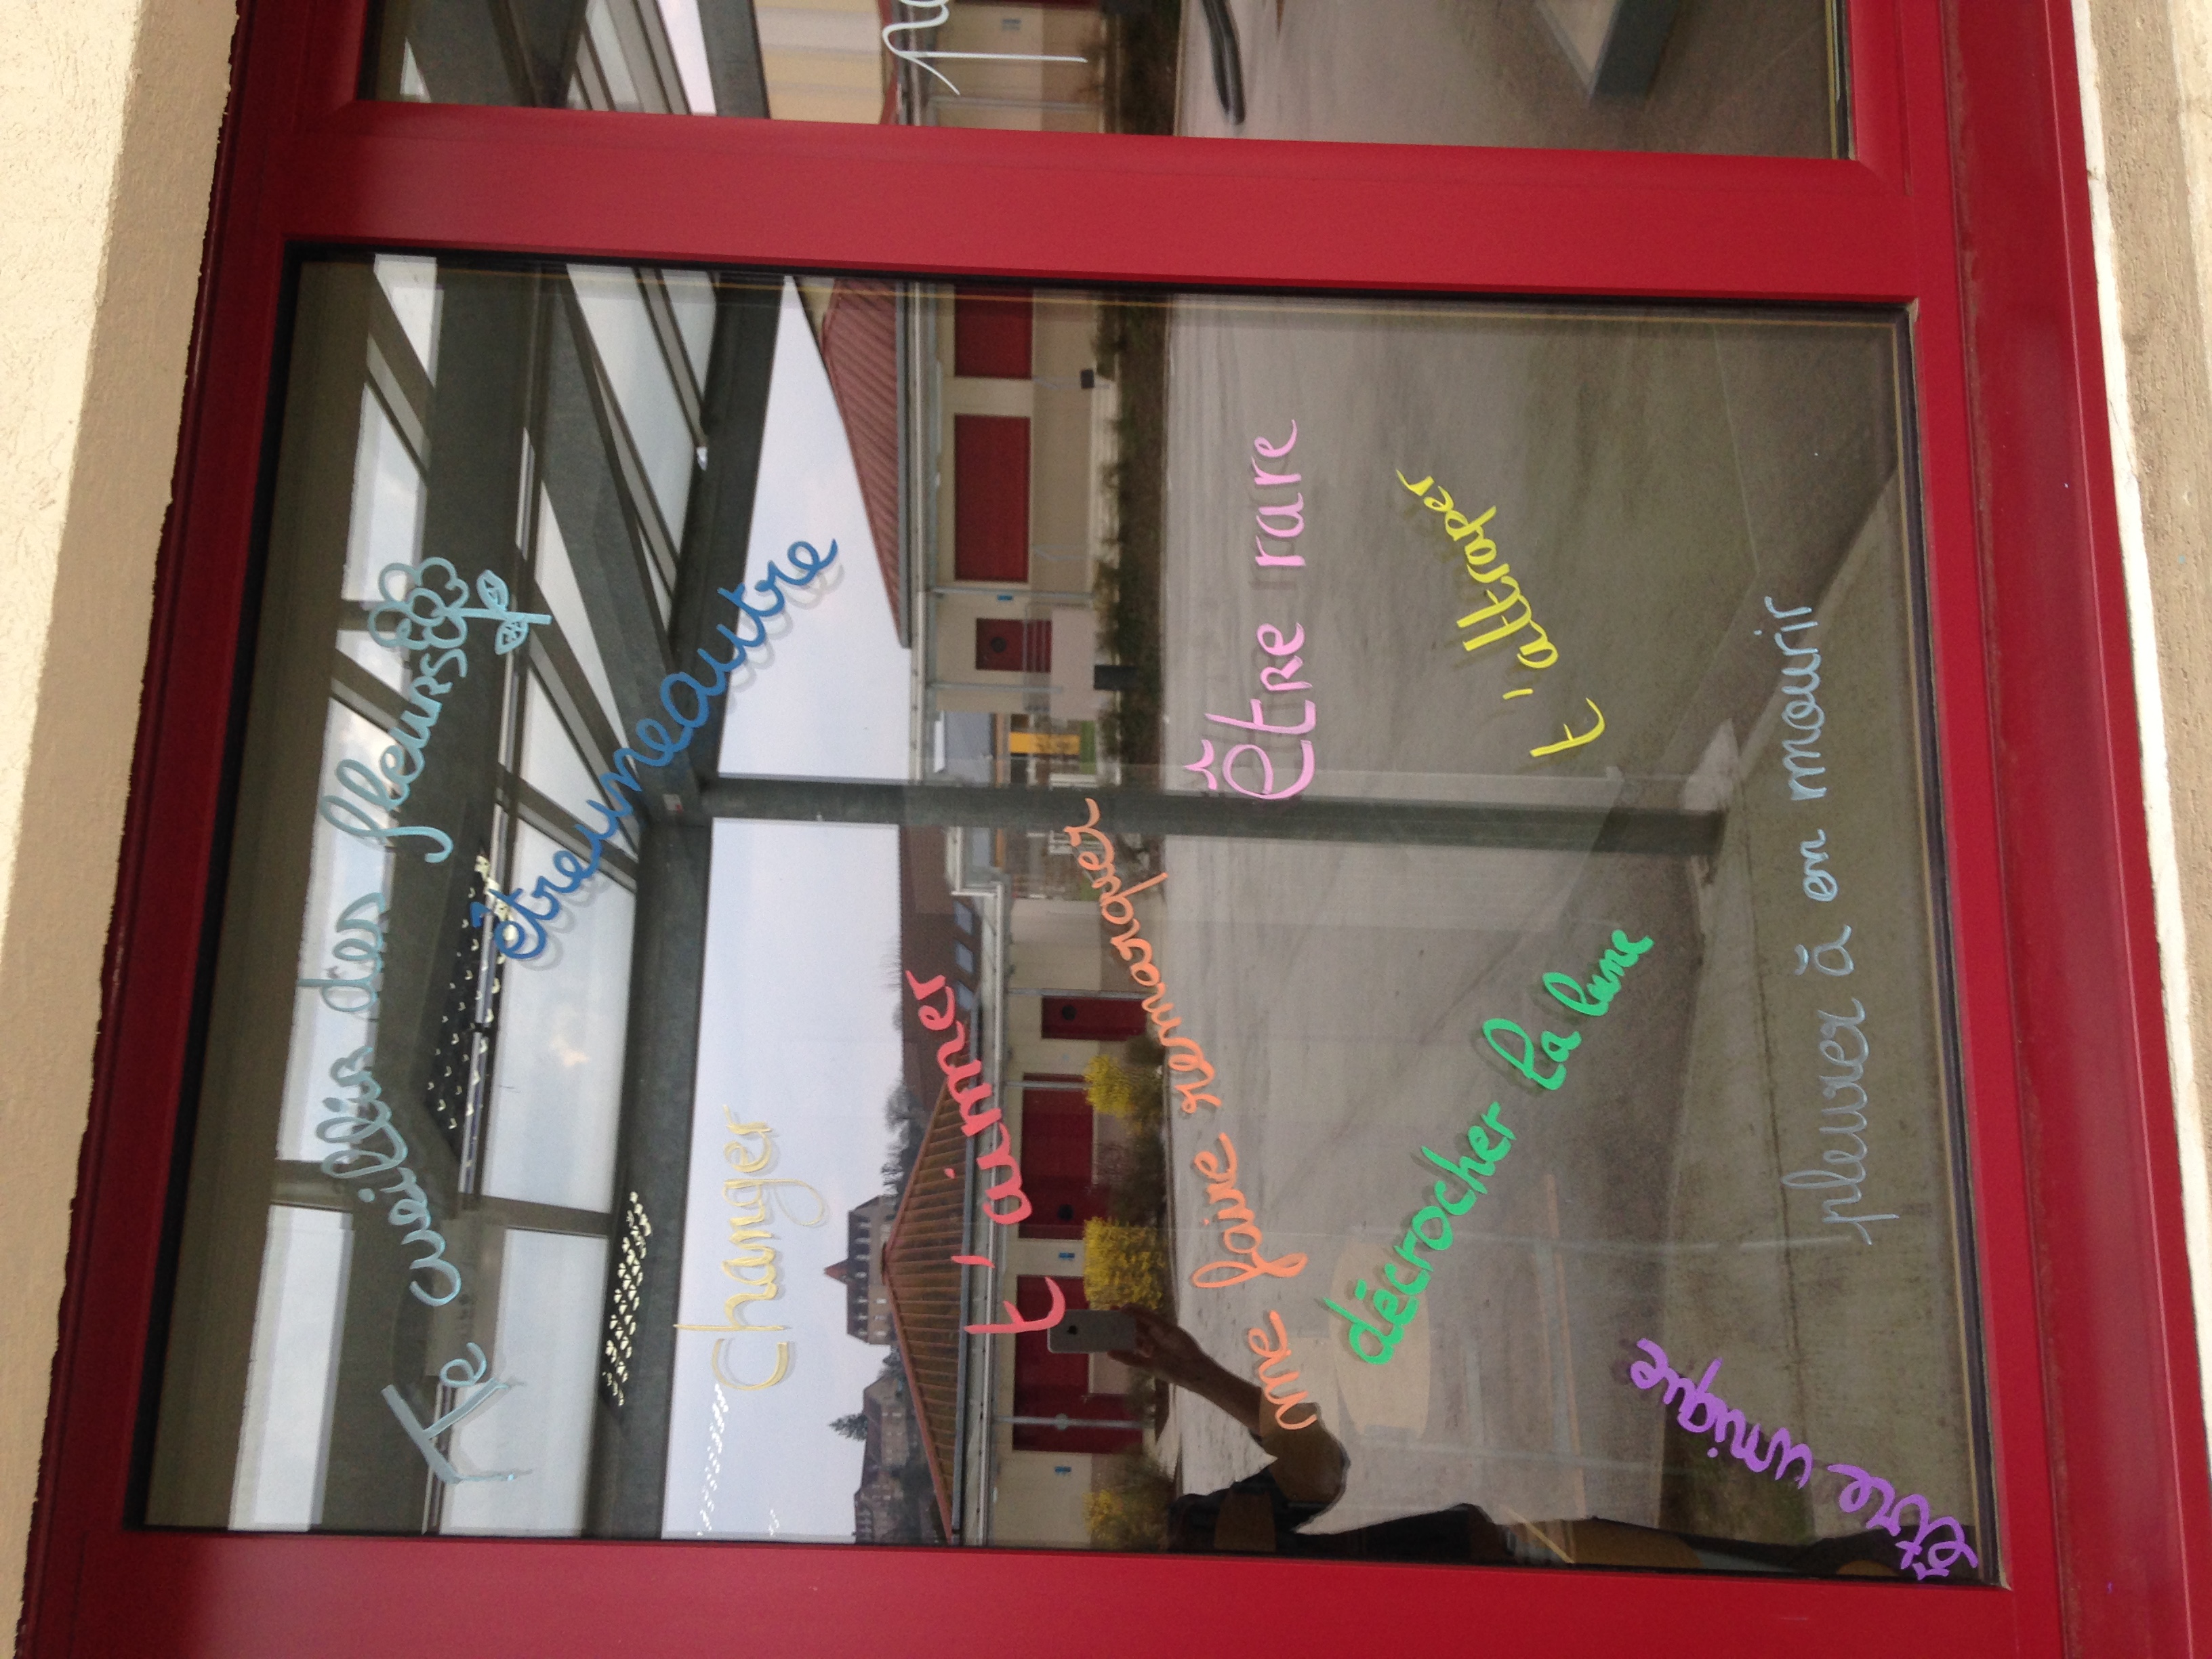 Te cueillir des fleurs
être une autre
Changer
t'aimer
me faire remarquer
être rare
décrocher la lune
t'attraper
être unique
pleurer à en mourir